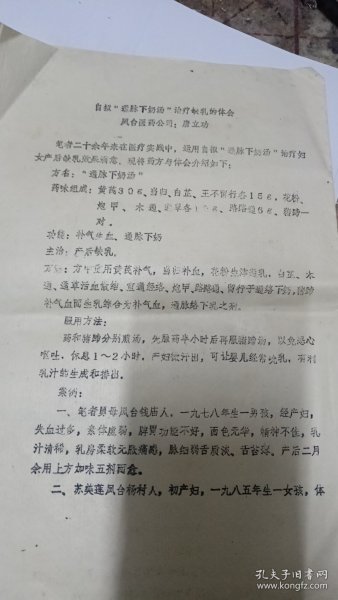 自拟“通脉下奶汤”治疗缺乳的体会
凤台医药公司：唐立功
笔者二十余年来在医疗实践中，运用自拟“通脉下奶汤”治疗妇
女产后缺乳效果满意，现将药方与体会介绍如下：
方名：“通脉下奶汤”
药味组成：黄芪30g、当归、白芷、王不留行各15g，花粉、
炮甲、木通、通草各10g、路路通9g、猪蹄一
对。
功能：补气生血、通脉下奶
主治：产后缺乳。
方中重用黄芪补气，当归补血，花粉生津增乳，白芷、木
通、通草活血散结、宣通经络、炮甲、路路通、留行子通络下奶，猪蹄
补气血而生乳综合为补气血，通脉络下乳之剂。
服用方法：
药和猪蹄分别煎汤，先服药半小时后再服猪蹄汤，以免恶心
呕吐，休息1～2小时，产妇微汗出，可让婴儿经常吮乳，有利
乳汁的生成和排出。
案例：
一、笔者舅母凤台钱庙人，一九七八年生一男孩，经产妇，
失血过多，素体虚弱，脾胃功能不好，面色无华，精神不佳，乳
汁清稀，乳房柔软无胀痛感，脉细弱舌质淡、舌苔薄、产后二月
余用上方加味五剂而愈。
二、苏英莲凤台杨村人，初产妇，一九八五年生一女孩，体
孔夫子旧书网